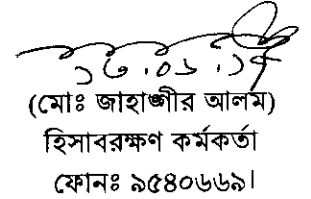 (মোঃ জাহাঙ্গীর আলম)
হিসাবরক্ষণ কর্মকর্তা
ফোনঃ ৯৫৪০৬৬৯।